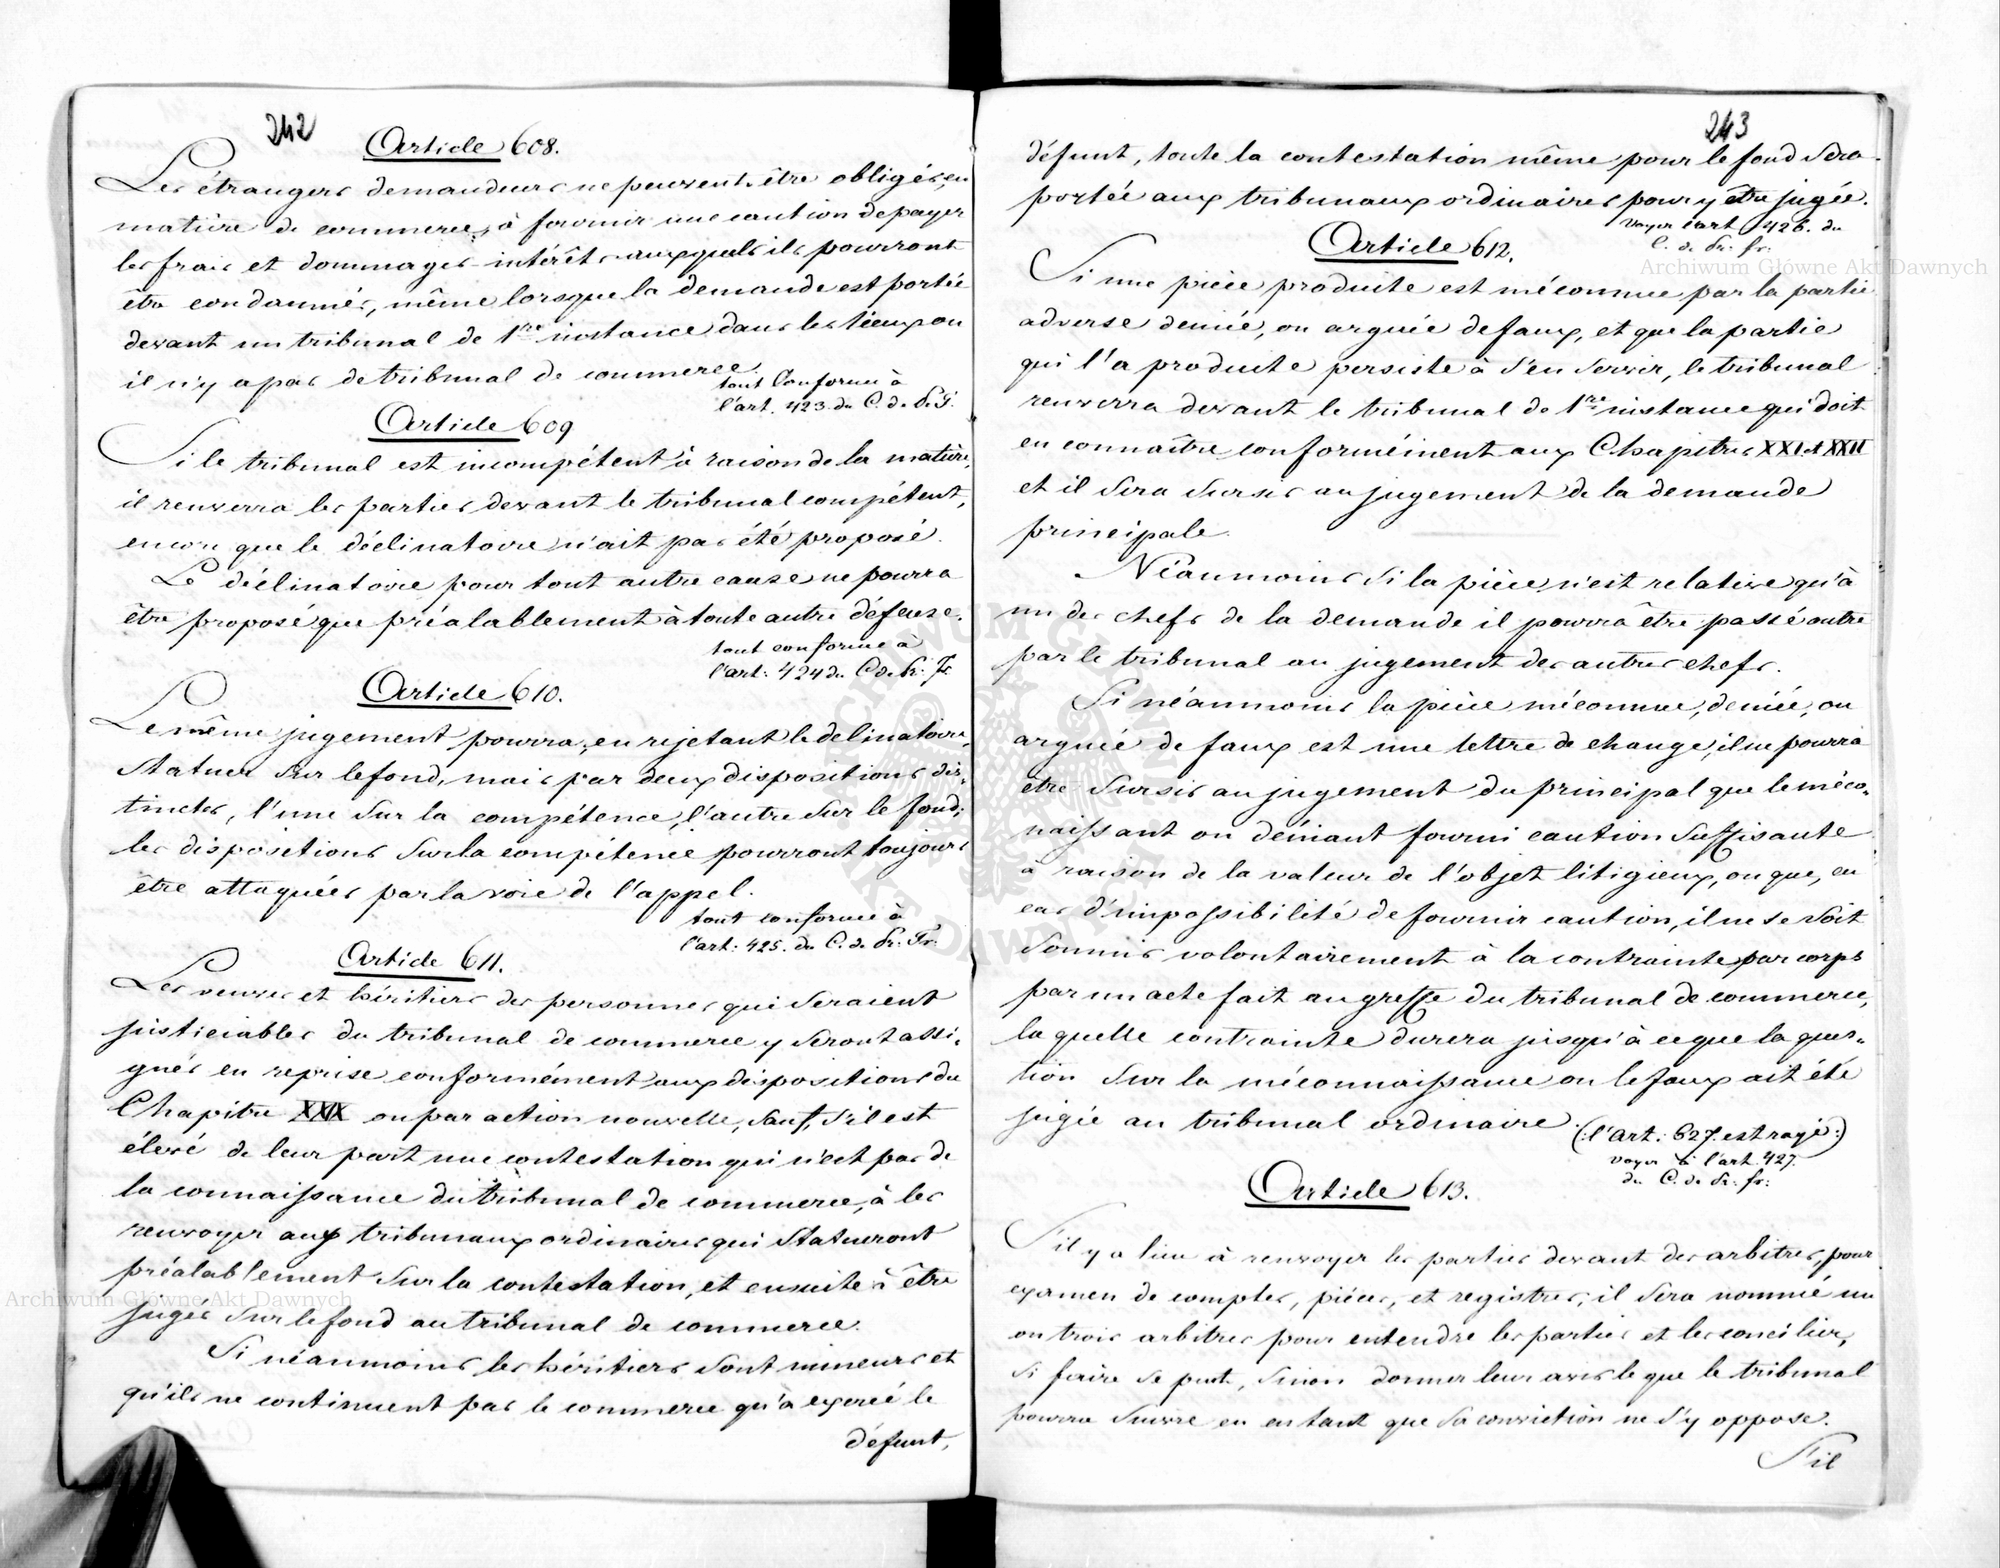 242
Article 608.
Les étrangers demandeurs ne peuvent être obligés, en
matière de commerce, à fournir une caution de payer
les frais et dommages-intérêts auxquels ils pourront
être condamnés, même lorsque la demande est portée
devant un tribunal de 1re instance dans les lieux ou
il n'y a pas de tribunal de commerce.
tout conforme à
l'art. 423. du C. de Pr. F.
Article 609
Si le tribunal est incompétent à raison de la matière,
il renverra les parties devant le tribunal compétent,
encore que le déclinatoire n'ait pas été proposé.
Le déclinatoire pour tout autre cause ne pourra
être proposé que préalablement à toute autre défense.
tout conforme à
l'art: 424 du C de Pr: Fr.
Article 610.
Le même jugement pourra, en rejetant le delinatoire,
statuer sur le fond, mais par deux dispositions dis-
tinctes, l'une sur la compétence, l'autre sur le fond;
les dispositions sur la compétence pourront toujours
être attaquées par la voie de l'appel.
tout conforme à
l'art: 425. du C. de Pr: Fr:
Article 611.
Les veuves et héritiers des personnes qui seraient
justiciables du tribunal de commerce y seront assi-
gnés en reprise conformément aux dispositions du
Chapitre XXIX ou par action nouvelle, sauf, s'il est
élevé de leur part une contestation qui n'est pas de
la connaissance du tribunal de commerce, à les
renvoyer aux tribunaux ordinaires qui statueront
préalablement sur la contestation, et ensuite à être
jugés sur le fond au tribunal de commerce.
Si néanmoins les héritiers sont mineurs et
qu'ils ne continuent pas le commerce qu'a exercé le
défunt,
243
défunt, toute la contestation même pour le fond sera
portée aux tribunaux ordinaires pour y être jugée.
voyez l'art 426. du
C. de Pr. fr.
Article 612.
Si une pièce produite est méconnue par la partie
adverse deniée, ou arguée de faux, et que la partie
qui l'a produite persiste à s'en servir, le tribunal
renverra devant le tribunal de 1re instance qui doit
en connaître conformément aux Chapitres XXI et XXII
et il sera sursis au jugement de la demande
principale.
Néanmoins si la pièce n'est relative qu'à
un des chefs de la demande il pourra être passé outre
par le tribunal au jugement des autres chefs.
Si néanmoins la pièce méconnue, deniée, ou
arguée de faux est une lettre de change, il ne pourra
être sursis au jugement du principal que le méco-
naissant ou déniant fourni caution suffisante
à raison de la valeur de l'objet litigieux, ou que, en
cas d'impossibilité de fournir caution, il ne se soit
soumis volontairement à la contrainte par corps
par un acte fait au greffe du tribunal de commerce,
la quelle contrainte durera jusqu'à ce que la ques-
tion sur la méconnaissance ou le faux ait été
jugée au tribunal ordinaire.
(:l'art: 627. est rayé:)
voyez l'art. 427.
du C. de Pr: fr:
Article 613.
S'il y a lieu à renvoyer les parties devant des arbitres, pour
examen de comptes, pièces, et registres, il sera nommé un
ou trois arbitres pour entendre les parties et les concilier,
si faire se peut, sinon donner leur avis le que le tribunal
pourra suivre en en tant que sa conviction ne s'y oppose.
S'il
Archiwum Główne Akt Dawnych
Archiwum Główne Akt Dawnych
ARCHIWUM GŁÓWNE AKT DAWNYCH